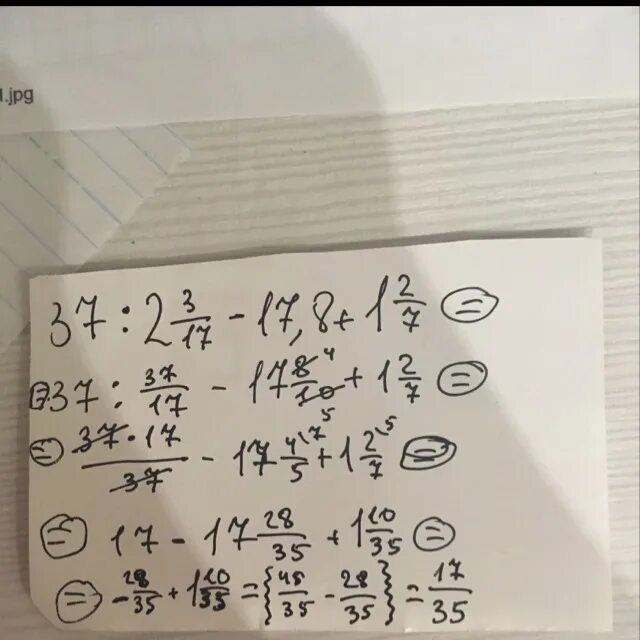 1.jpg
37 : 2 3/17 - 17,8 + 1 2/7 =
= 37 : 37/17 - 17 8/10 4 5 + 1 2/7 =
= 37·17/37 - 17 4/5 \7 + 1 2/7 \5 =
= 17 - 17 28/35 + 1 10/35 =
= -28/35 + 1 10/35 = {45/35 - 28/35} = 17/35